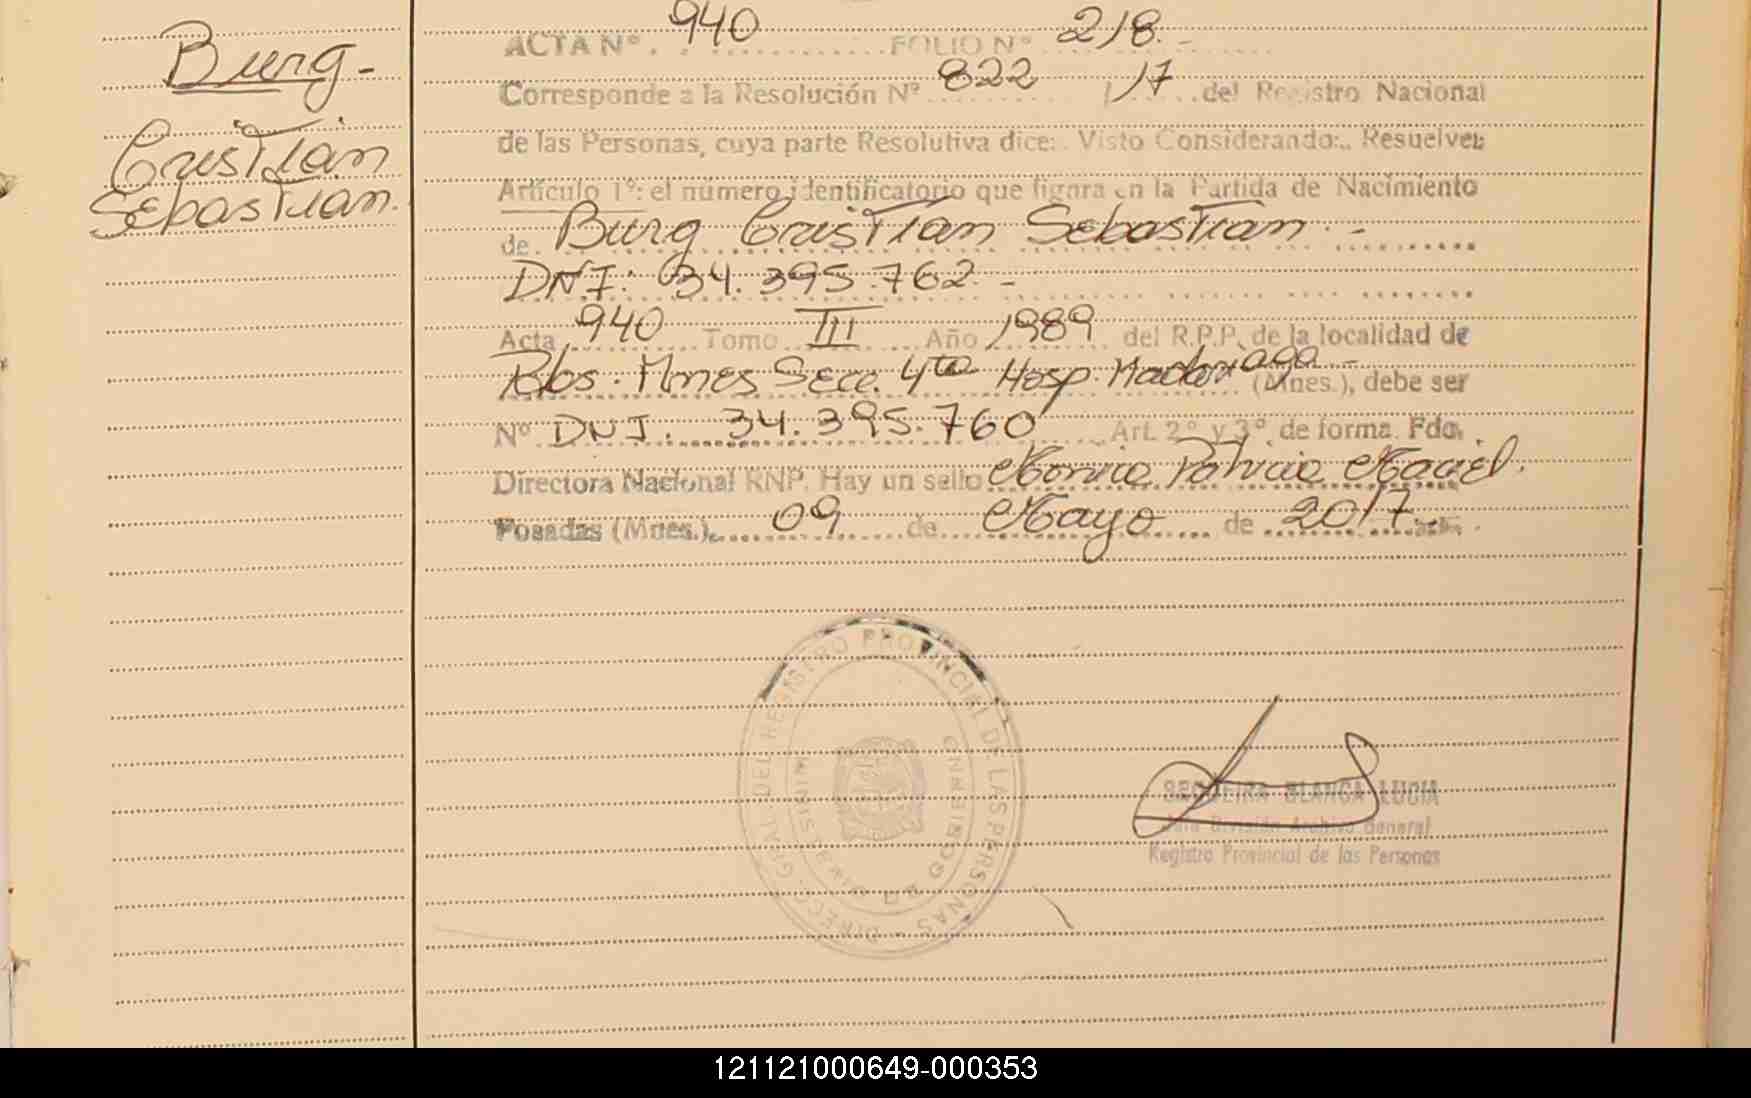 Burg-
Cristian
Sebastian.
ACTA Nº. 940 FOLIO Nº 218.-
Corresponde a la Resolución Nº 822 / 17 del Registro Nacional
de las Personas, cuya parte Resolutiva dice: Visto Considerando: Resuelve:
Artículo 1º: el número identificatorio que figura en la Partida de Nacimiento
de Burg Cristian Sebastian.-
DNI: 34.395.762.-
Acta 940 Tomo III Año 1989 del R.P.P. de la localidad de
Pdas. Mnes Secc. 4ta Hosp. Madariaga.- (Mnes.), debe ser
Nº DNI. 34.395.760 Art. 2º y 3º de forma. Fdo.
Directora Nacional RNP. Hay un sello Monica Patricia Maciel.
Posadas (Mnes.), 09 de Mayo de 2017.-
DIRECC. GRAL DEL REGISTRO PROVINCIAL DE LAS PERSONAS -
MINISTERIO DE GOBIERNO
SEQUEIRA BLANCA LUCIA
Jefa División Archivo General
Registro Provincial de las Personas
121121000649-000353